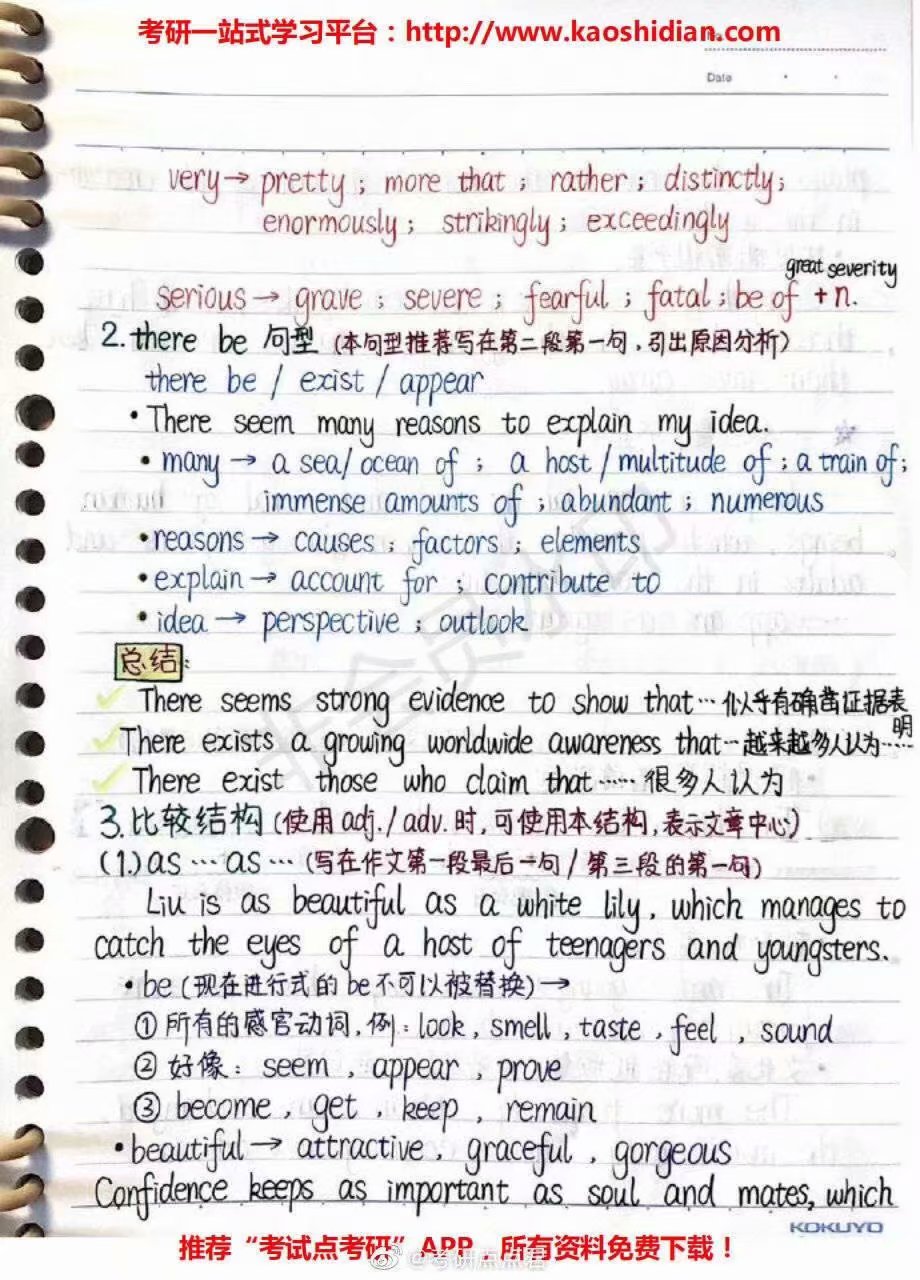 考研一站式学习平台：http://www.kaoshidian.com
No.
Date
very → pretty ; more that ; rather ; distinctly ;
enormously ; strikingly ; exceedingly
great severity
serious → grave ; severe ; fearful ; fatal ; be of + n.
2. there be 句型 (本句型推荐写在第二段第一句，引出原因分析)
there be / exist / appear
• There seem many reasons to explain my idea.
• many → a sea/ocean of ; a host / multitude of ; a train of ;
immense amounts of ; abundant ; numerous
• reasons → causes ; factors ; elements
• explain → account for ; contribute to
• idea → perspective ; outlook
总结:
There seems strong evidence to show that … 似乎有确凿证据表明
There exists a growing worldwide awareness that … 越来越多人认为……
There exist those who claim that …… 很多人认为
3. 比较结构 (使用 adj. / adv. 时, 可使用本结构, 表示文章中心)
(1.) as … as … (写在作文第一段最后一句 / 第三段的第一句)
Liu is as beautiful as a white lily, which manages to
catch the eyes of a host of teenagers and youngsters.
• be (现在进行式的 be 不可以被替换) →
① 所有的感官动词, 例: look, smell, taste, feel, sound
② 好像: seem, appear, prove
③ become, get, keep, remain
• beautiful → attractive, graceful, gorgeous
Confidence keeps as important as soul and mates, which
KOKUYO
推荐“考试点考研”APP，所有资料免费下载！
@考研点点君
非会员水印